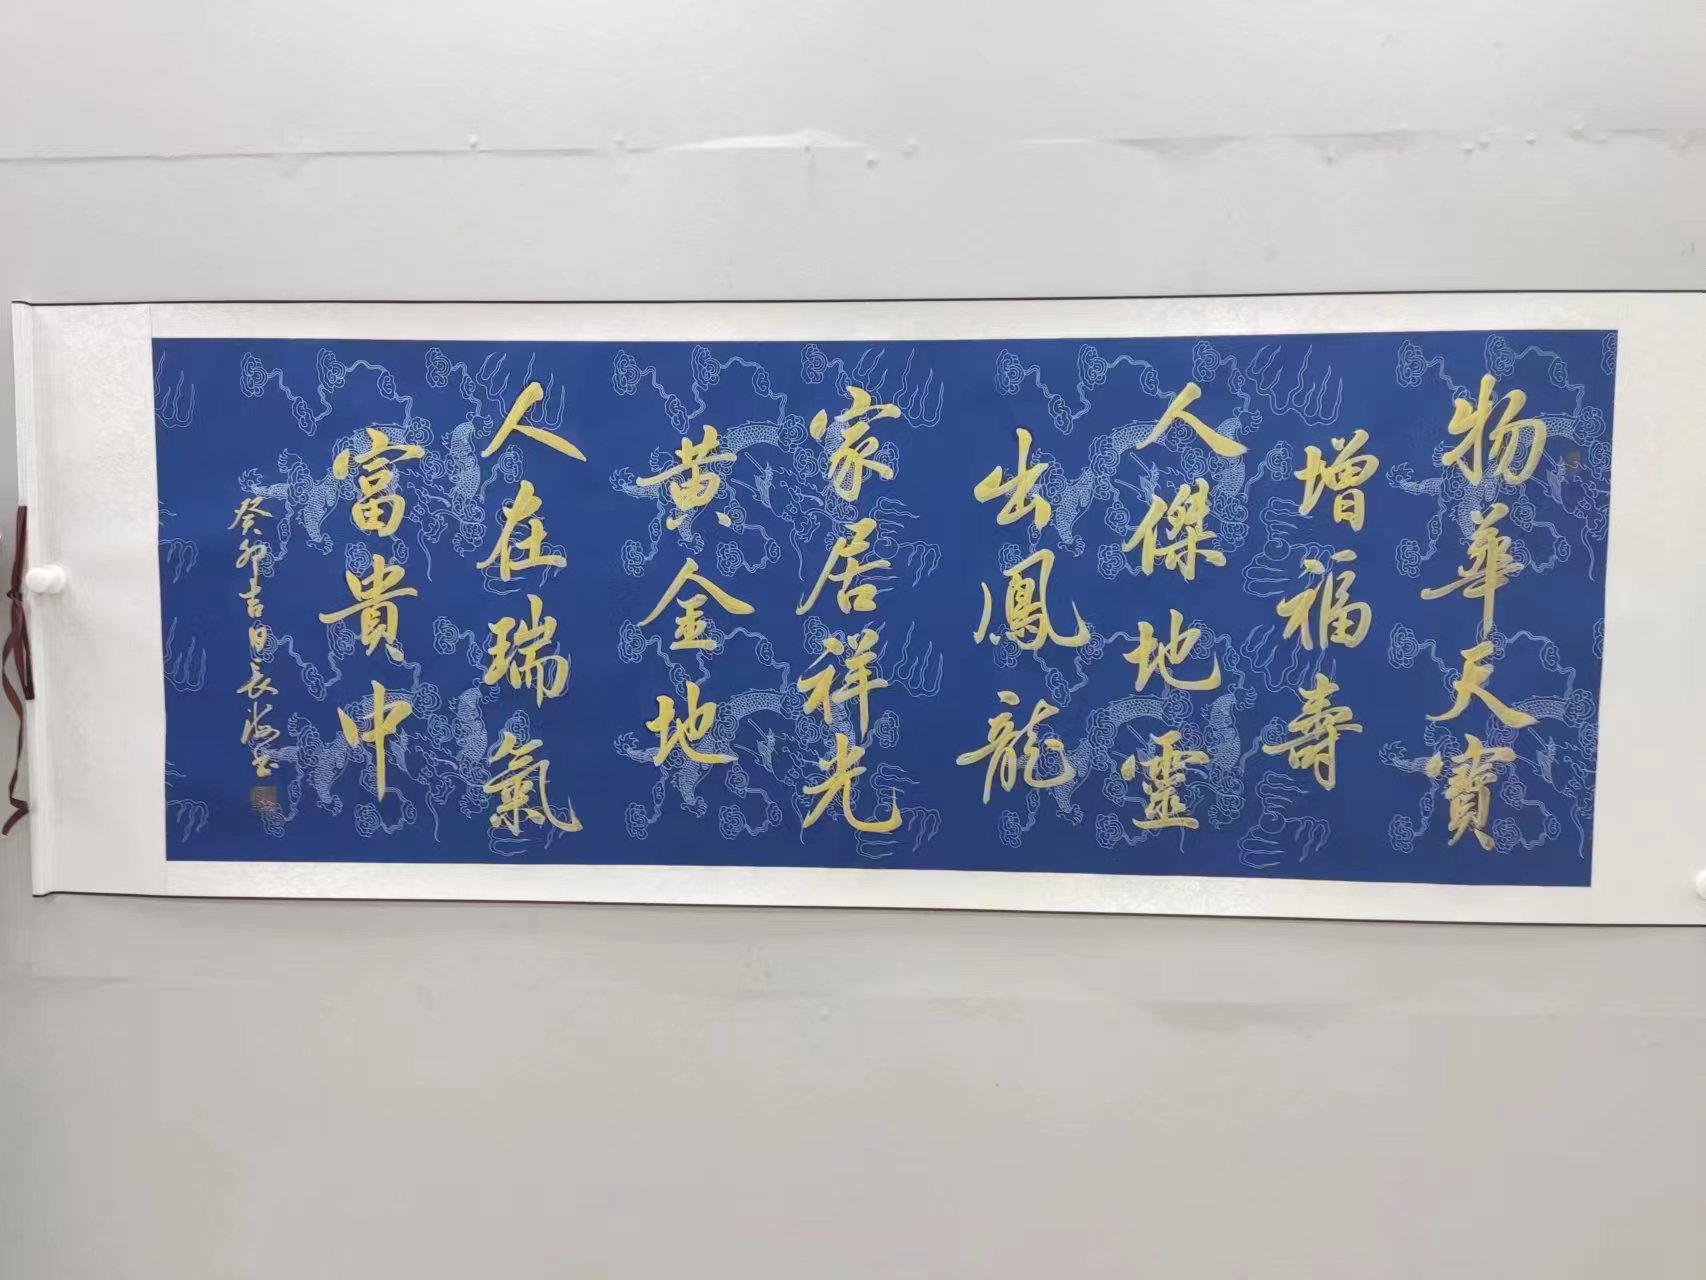 物華天寳
增福壽
人傑地靈
出鳳龍
家居祥光
黄金地
人在瑞氣
富貴中
癸卯吉日長海书